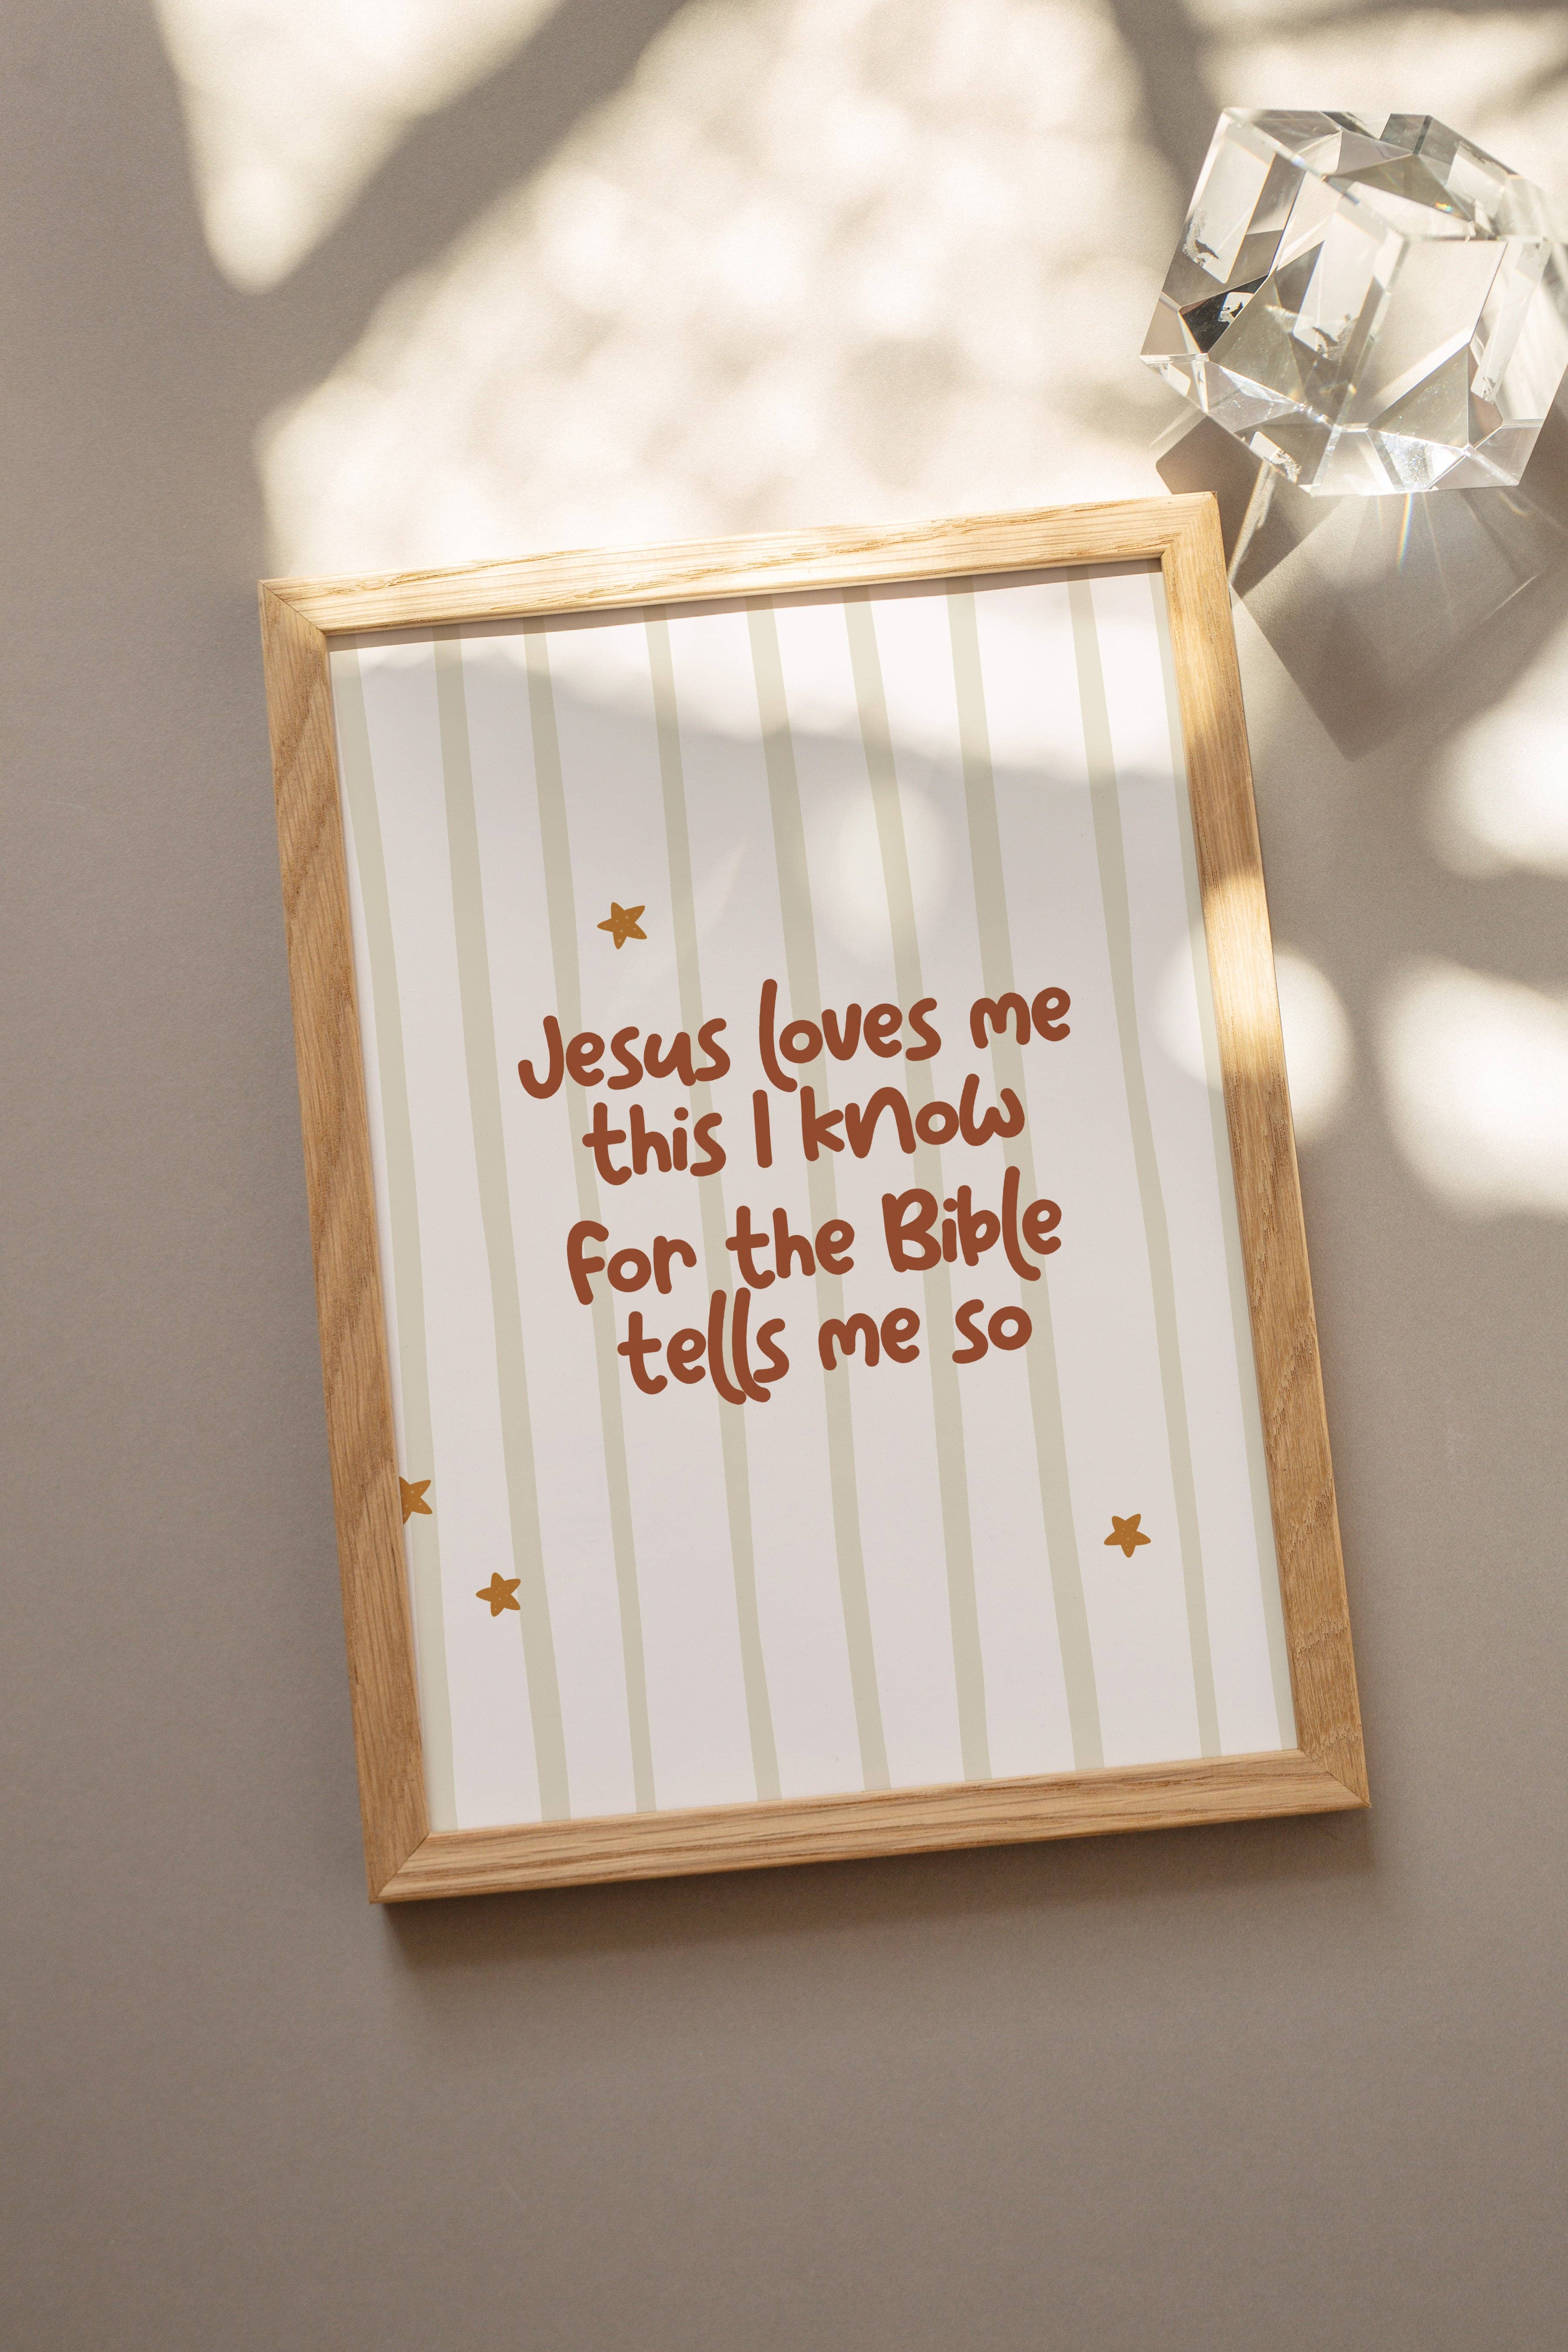 Jesus loves me
this I know
for the Bible
tells me so